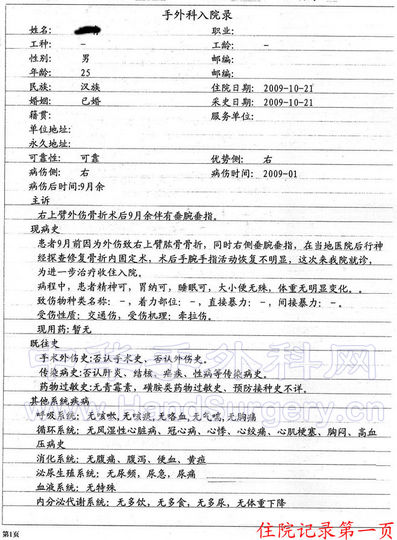 手外科入院录
姓名: 职业:
工种: - 工龄: -
性别: 男 邮编:
年龄: 25 邮编:
民族: 汉族 住院日期: 2009-10-21
婚姻: 已婚 采史日期: 2009-10-21
籍贯: 服务单位:
单位地址:
永久地址:
可靠性: 可靠 优势侧: 右
病伤侧: 右 病伤时间: 2009-01
病伤后时间:9月余
主诉
右上臂外伤骨折术后9月余伴有垂腕垂指。
现病史
患者9月前因为外伤致右上臂肱骨骨折，同时右侧垂腕垂指，在当地医院后行神
经探查修复骨折内固定术，术后手腕手指活动恢复不明显，这次来我院就诊，
为进一步治疗收住入院。
病程中，患者精神可，胃纳可，睡眠可，大小便无殊，体重无明显变化。。
致伤物种类名称: -，着力部位: -，直接暴力: -，间接暴力: -。
受伤性质: 交通伤，受伤机理: 牵拉伤。
现用药:暂无
既往史
手术外伤史:否认手术史、否认外伤史。
传染病史:否认肝炎、结核、疟疾、性病等传染病史。
药物过敏史:无青霉素，磺胺类药物过敏史、预防接种史不详。
其他系统疾病
呼吸系统: 无咳嗽,无咳痰,无咯血,无气喘,无胸痛
循环系统: 无风湿性心脏病、冠心病、心悸、心绞痛、心肌梗塞、胸闷、高血
压病史
消化系统: 无腹痛、腹泻、便血、黄疸
泌尿生殖系统: 无尿频，尿急，尿痛
血液系统: 无特殊
内分泌代谢系统: 无多饮，无多食，无多尿，无体重下降
第1页
住院记录第一页
中华手外科网
www.cnHandSurgery.cn